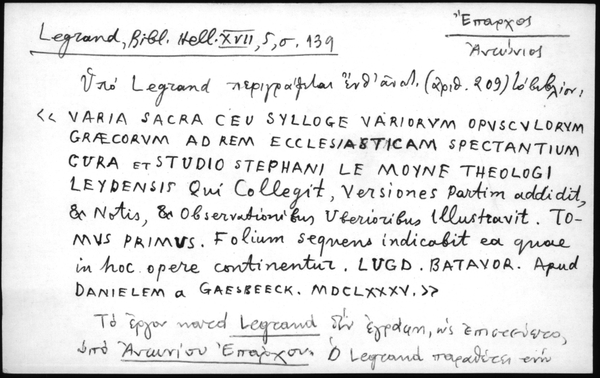 Legrand, Bibl. Hell. XVII, 5, σ. 139
Ἔπαρχος
Ἀντώνιος
Ὑπό Legrand περιγράφεται (ἀριθ. 209) τό βιβλίον:
« VARIA SACRA CEU SYLLOGE VARIORVM OPVSCVLORVM
GRÆCORVM AD REM ECCLESIASTICAM SPECTANTIUM
CURA ET STUDIO STEPHANI LE MOYNE THEOLOGI
LEYDENSIS Qui Collegit, Versiones Partim addidit,
& Notis, & Observationibus Uberioribus Illustravit. TO-
MVS PRIMVS. Folium sequens indicabit ea quae
in hoc opere continentur. LUGD. BATAVOR. Apud
DANIELEM a GAESBEECK. MDCLXXXV. »
Τό ἔργον κατά Legrand δέν ἐγράφη, ὡς ἐπιστεύετο,
ὑπό Ἀντωνίου Ἐπάρχου. Ὁ Legrand παραθέτει στήν